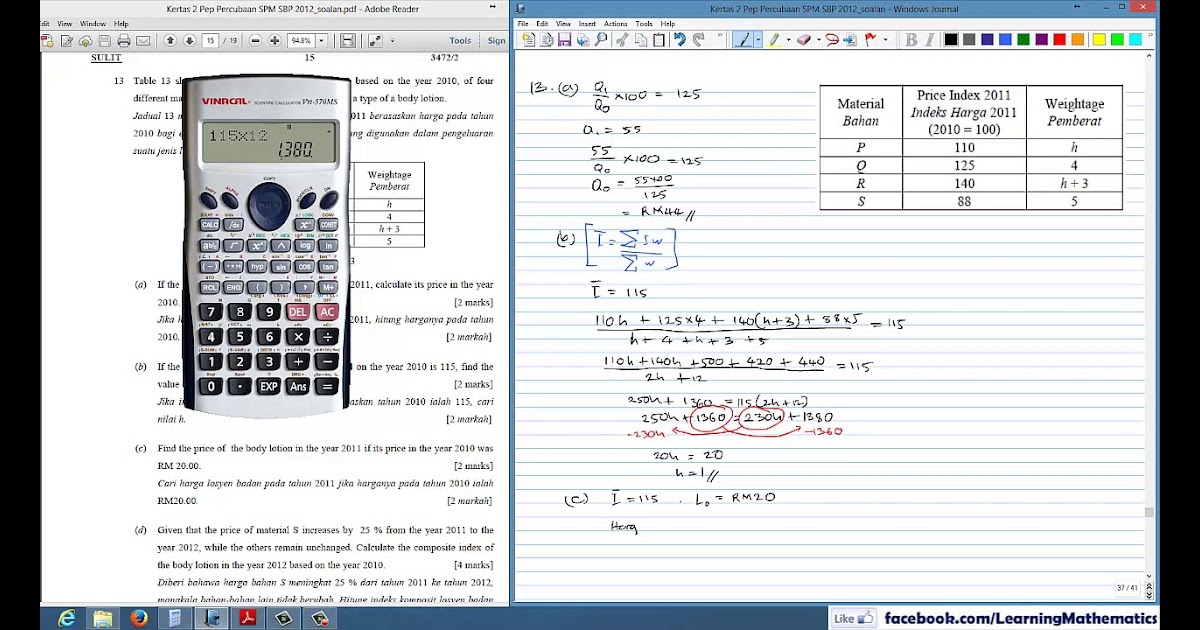 Kertas 2 Pep Percubaan SPM SBP 2012_soalan.pdf - Adobe Reader
Edit View Window Help
15 / 19
94.8%
Tools Sign
SULIT 15 3472/2
13 Table 13 based on the year 2010, of four
different a type of a body lotion.
Jadual 13 2011 berasaskan harga pada tahun
2010 bagi yang digunakan dalam pengeluaran
suatu jenis
Weightage
Pemberat
h
4
h + 3
5
(a) If the 2011, calculate its price in the year
2010. [2 marks]
Jika 2011, hitung harganya pada tahun
2010. [2 markah]
(b) If the on the year 2010 is 115, find the
value [2 marks]
Jika berasaskan tahun 2010 ialah 115, cari
nilai h. [2 markah]
(c) Find the price of the body lotion in the year 2011 if its price in the year 2010 was
RM 20.00. [2 marks]
Cari harga losyen badan pada tahun 2011 jika harganya pada tahun 2010 ialah
RM20.00. [2 markah]
(d) Given that the price of material S increases by 25 % from the year 2011 to the
year 2012, while the others remain unchanged. Calculate the composite index of
the body lotion in the year 2012 based on the year 2010. [4 marks]
Diberi bahawa harga bahan S meningkat 25 % dari tahun 2011 ke tahun 2012,
manakala bahan-bahan lain tidak berubah. Hitung indeks komposit losyen badan
VINACAL SCIENTIFIC CALCULATOR Vn-570MS
115x12
1,380.
COPY
CALC CONST
log ln
hyp sin cos tan
RCL ENG ( ) , M+
7 8 9 DEL AC
4 5 6 × ÷
1 2 3 + −
0 . EXP Ans =
Kertas 2 Pep Percubaan SPM SBP 2012_soalan - Windows Journal
File Edit View Insert Actions Tools Help
B I
13. (a) Q1/Q0 × 100 = 125
Q1 = 55
55/Q0 × 100 = 125
Q0 = 55×100/125
= RM44 //
(b) [ Ī = ΣIw/Σw ]
Ī = 115
110h + 125×4 + 140(h+3) + 88×5 / h+4+h+3+5 = 115
110h + 140h + 500 + 420 + 440 / 2h + 12 = 115
250h + 1360 = 115(2h+12)
250h + 1360 = 230h + 1380
-230h -1360
20h = 20
h = 1 //
(c) Ī = 115 . L0 = RM20
Harg
Material
Bahan
Price Index 2011
Indeks Harga 2011
(2010 = 100)
Weightage
Pemberat
P 110 h
Q 125 4
R 140 h + 3
S 88 5
37 / 41
Like facebook.com/LearningMathematics